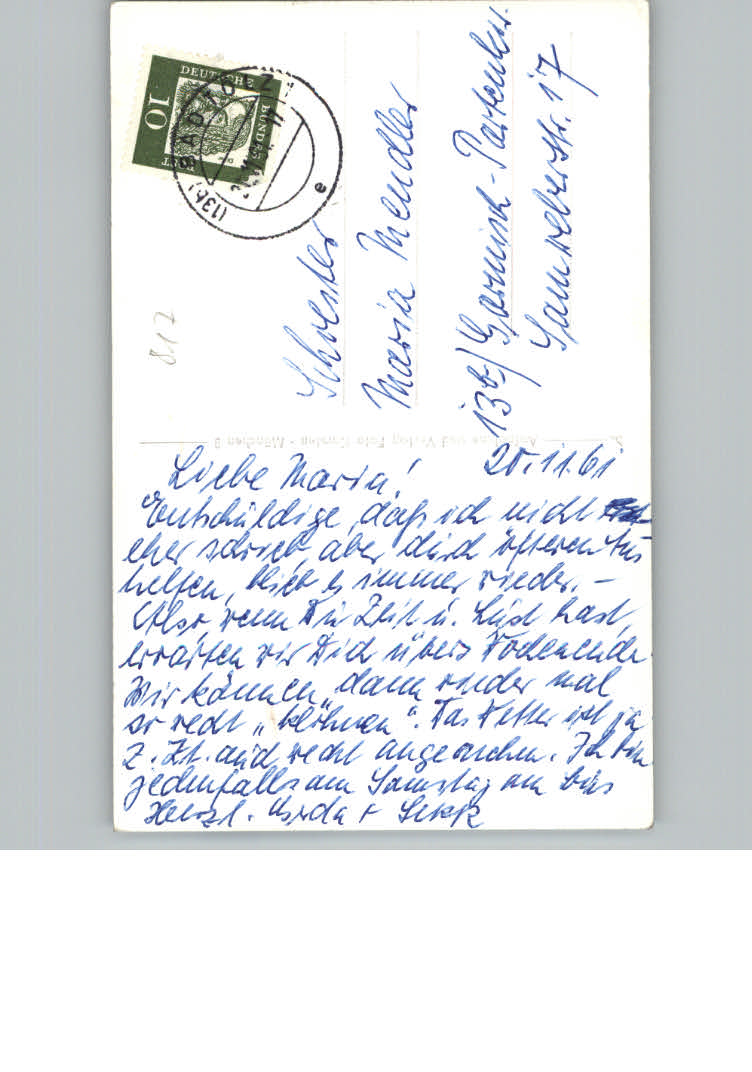 DEUTSCHE
BUNDES
POST
10
(13b) BAD TÖLZ 1
e
Schwester
Maria Mendler
13b) Garmisch-Partenk.
17
817
Aufnahme und Verlag Foto - München 9
20.11.61
Liebe Maria!
Entschuldige, daß ich nicht
eher schrieb, aber durch öfteren Aus
helfen, blieb es immer wieder. –
Also wenn Du Zeit u. Lust hast,
erwarten wir Dich übers Wochenende
Wir können dann wieder mal
so recht „klöhnen“. Das Wetter ist ja
z. Zt. auch recht angenehm. Ich bin
jedenfalls am Samstag am Bus
Herzl.